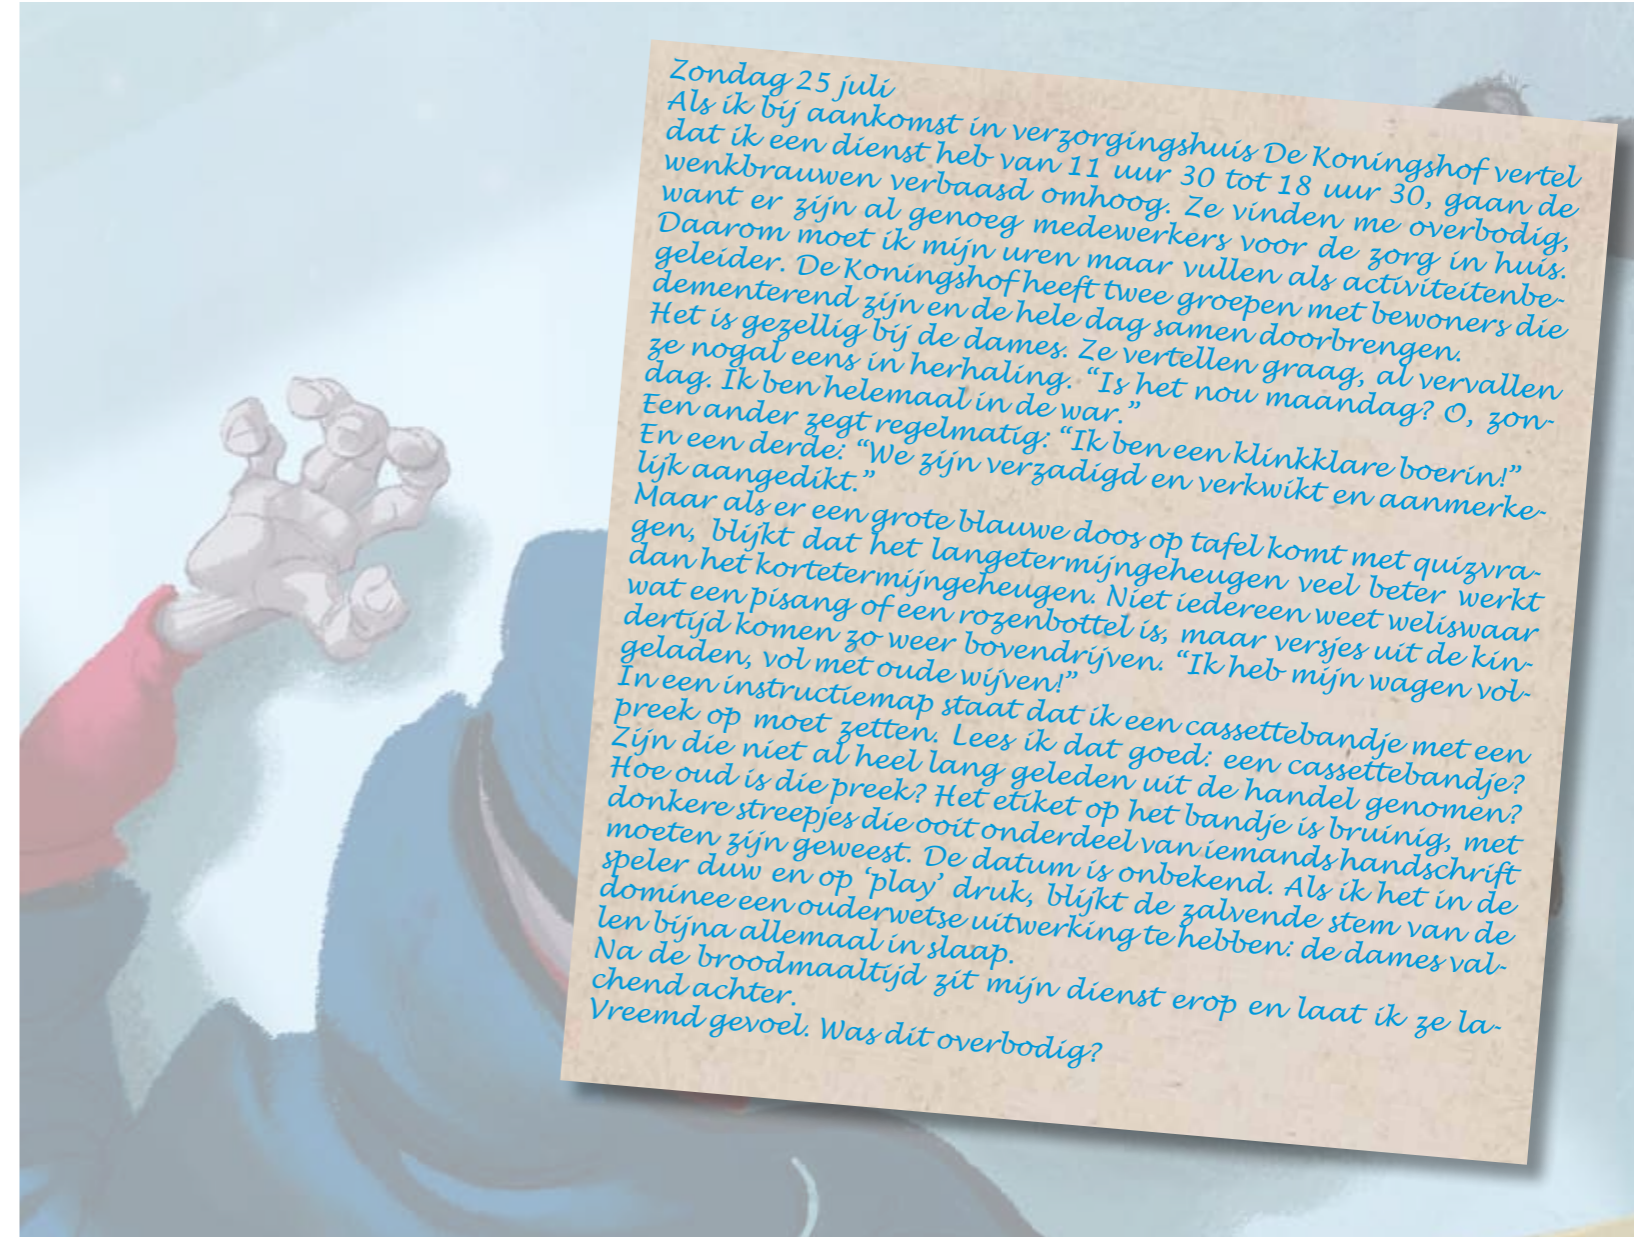 Zondag 25 juli
Als ik bij aankomst in verzorgingshuis De Koningshof vertel
dat ik een dienst heb van 11 uur 30 tot 18 uur 30, gaan de
wenkbrauwen verbaasd omhoog. Ze vinden me overbodig,
want er zijn al genoeg medewerkers voor de zorg in huis.
Daarom moet ik mijn uren maar vullen als activiteitenbe-
geleider. De Koningshof heeft twee groepen met bewoners die
dementerend zijn en de hele dag samen doorbrengen.
Het is gezellig bij de dames. Ze vertellen graag, al vervallen
ze nogal eens in herhaling. “Is het nou maandag? O, zon-
dag. Ik ben helemaal in de war.”
Een ander zegt regelmatig: “Ik ben een klinkklare boerin!”
En een derde: “We zijn verzadigd en verkwikt en aanmerke-
lijk aangedikt.”
Maar als er een grote blauwe doos op tafel komt met quizvra-
gen, blijkt dat het langetermijngeheugen veel beter werkt
dan het kortetermijngeheugen. Niet iedereen weet weliswaar
wat een pisang of een rozenbottel is, maar versjes uit de kin-
dertijd komen zo weer bovendrijven. “Ik heb mijn wagen vol-
geladen, vol met oude wijven!”
In een instructiemap staat dat ik een cassettebandje met een
preek op moet zetten. Lees ik dat goed: een cassettebandje?
Zijn die niet al heel lang geleden uit de handel genomen?
Hoe oud is die preek? Het etiket op het bandje is bruinig, met
donkere streepjes die ooit onderdeel van iemands handschrift
moeten zijn geweest. De datum is onbekend. Als ik het in de
speler duw en op ‘play’ druk, blijkt de zalvende stem van de
dominee een ouderwetse uitwerking te hebben: de dames val-
len bijna allemaal in slaap.
Na de broodmaaltijd zit mijn dienst erop en laat ik ze la-
chend achter.
Vreemd gevoel. Was dit overbodig?